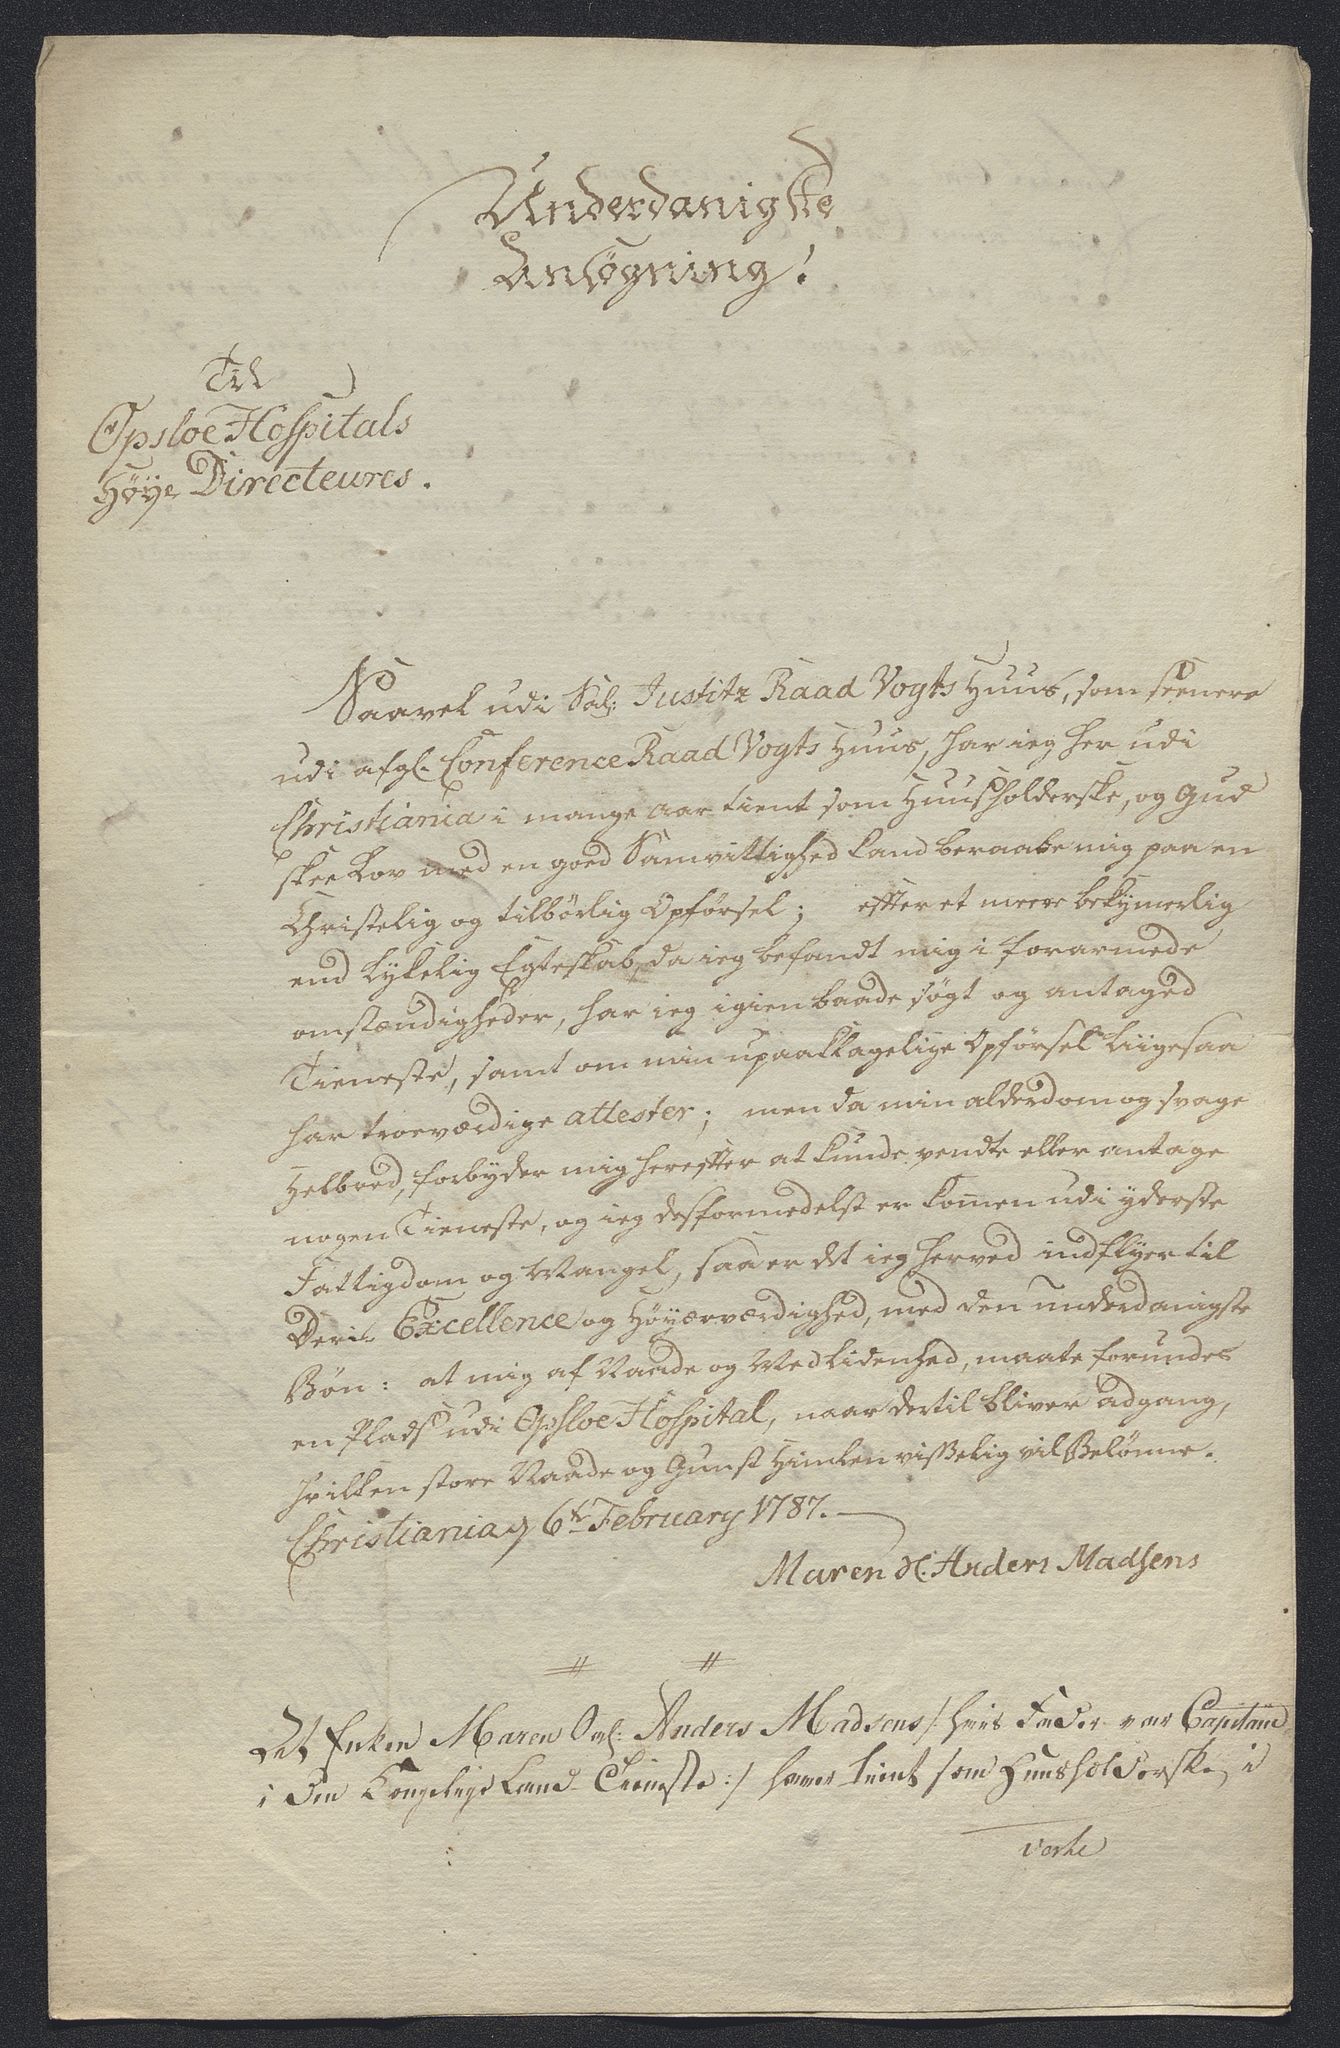 Underdanigste
Ansøgning!
Til
Opsloe Hospitals
Høye Directeures.
Saavel udi Sal: Justitz Raad Vogts Huus, som seenere
udi afgl. Conference Raad Vogts Huus, har ieg her udi
Christiania i mange aar tient som Huusholderske, og Gud
skee Lov med en goed Samvittighed kand beraabe mig paa en
Christelig og tilbørlig Opførsel; effter et meere bekymerlig
end Lykelig Egteskab, da ieg befandt mig i forarmede
omstændigheder, har ieg igien baade søgt og antaged
Tieneste, samt om min upaaklagelige Opførsel liigesaa
har troeværdige attester; men da min alderdom og svage
Helbred, forbyder mig hereffter at kunde vendte eller antage
nogen Tieneste, og ieg desformedelst er komen udi yderste
Fattigdom og Mangel, saa er det ieg herved indflyer til
Deris Excellence og Høyærværdighed, med den underdanigste
Bøn: at mig af Naade og Medlidenhed, maate forundes
en Plads udi Opsloe Hospital, naar dertil bliver adgang,
hvilken store Naade og Gunst Himlen visselig vil Belønne.
Christiania d 6te February 1787.
Maren Sl. Anders Madsens
Det Enken Maren Sal: Anders Madsens /: hvis Fader var Capitain
i den Kongelige Land-Tieneste :/ haver tient som Huusholderske, i
verte